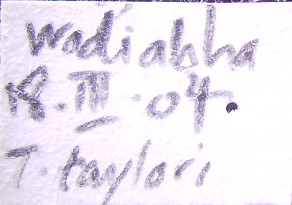 Wadiabha
18.III.04.
T. taylori